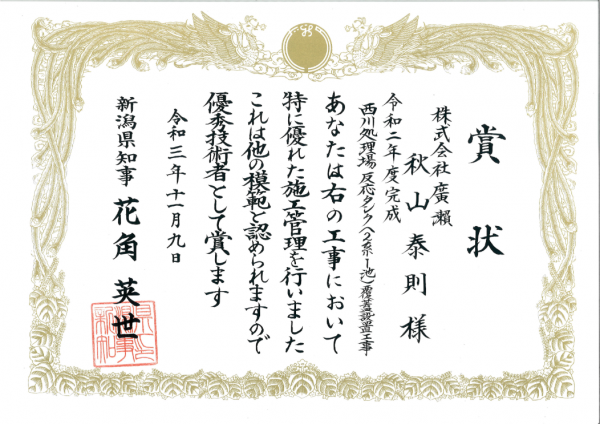 賞状
株式会社廣瀬
秋山泰則様
令和二年度完成
西川処理場反応タンク(2系-1池)覆蓋設置工事
あなたは右の工事において
特に優れた施工管理を行いました
これは他の模範と認められますので
優秀技術者として賞します
令和三年十一月九日
新潟県知事 花角英世